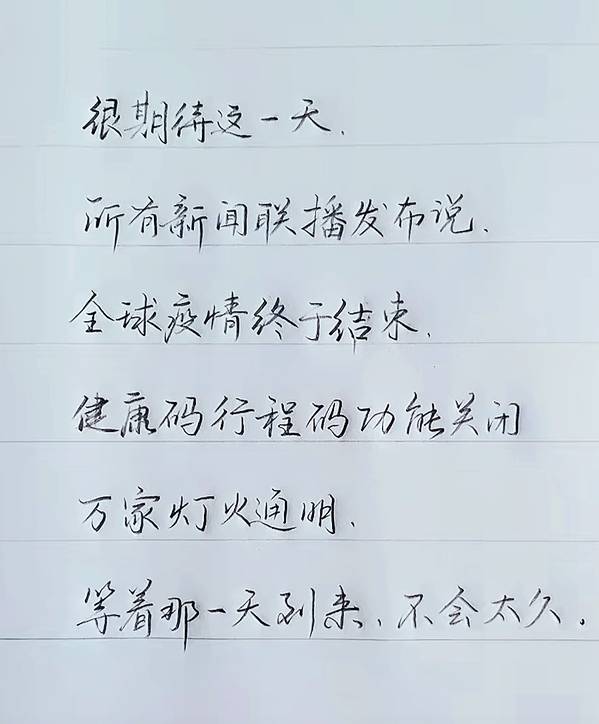 很期待这一天.
所有新闻联播发布说.
全球疫情终于结束.
健康码行程码功能关闭
万家灯火通明.
等着那一天到来.不会太久.